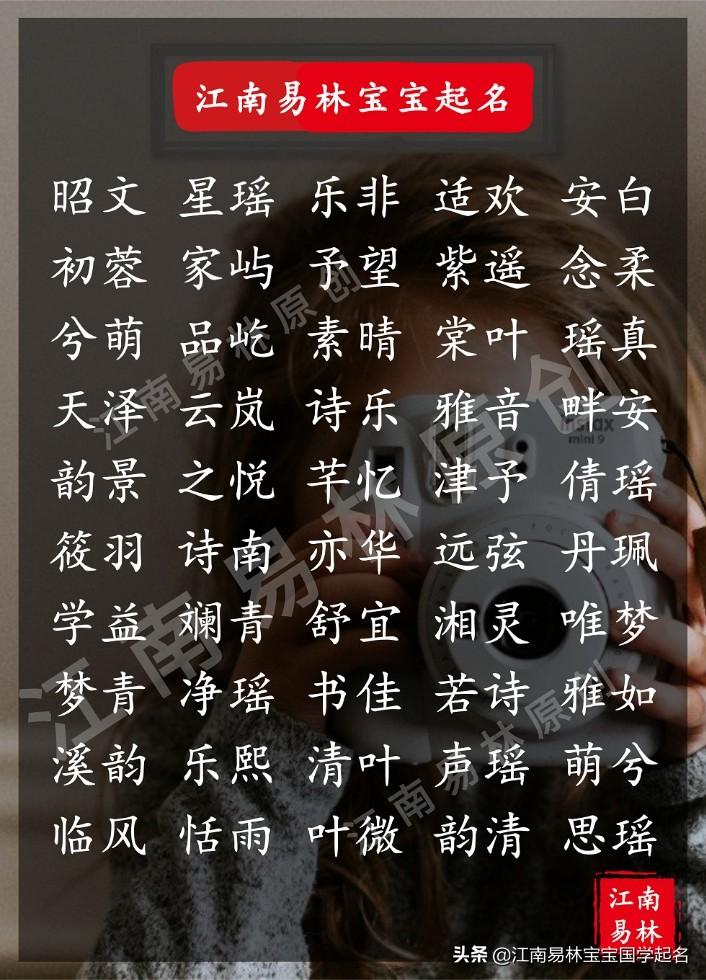 江南易林宝宝起名
昭文 星瑶 乐非 适欢 安白
初蓉 家屿 予望 紫遥 念柔
兮萌 品屹 素晴 棠叶 瑶真
天泽 云岚 诗乐 雅音 畔安
韵景 之悦 芊忆 津予 倩瑶
筱羽 诗南 亦华 远弦 丹珮
学益 斓青 舒宜 湘灵 唯梦
梦青 净瑶 书佳 若诗 雅如
溪韵 乐熙 清叶 声瑶 萌兮
临风 恬雨 叶微 韵清 思瑶
江南易林原创
江南易林原创
江南易林原创
instax
mini 9
江南
易林
头条 @江南易林宝宝国学起名